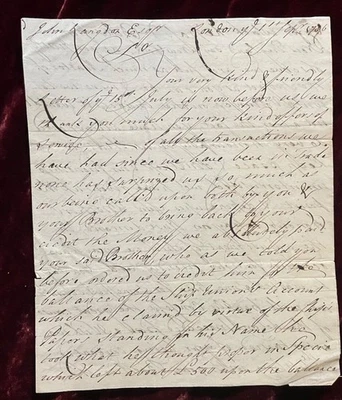 John Langdon Esqr London ye 1st Septr 1786
Sr
Your very kind & friendly
Letter of ye 15th July is now before us we
thank you much for your kind offer of
Service, of all the transactions we
have had since we have been in Trade
none has surprized us so much as
our being call'd upon both by you &
your Brother to bring back to your
credit the Money we absolutely paid
your said Brother, who as we told you
before ordered us to credit him for the
ballance of the Ship Account
which he claim'd by virtue of the Ships
Papers standing in his Name the
took what he thought proper in Specie
which left about £ 500 upon the ballance